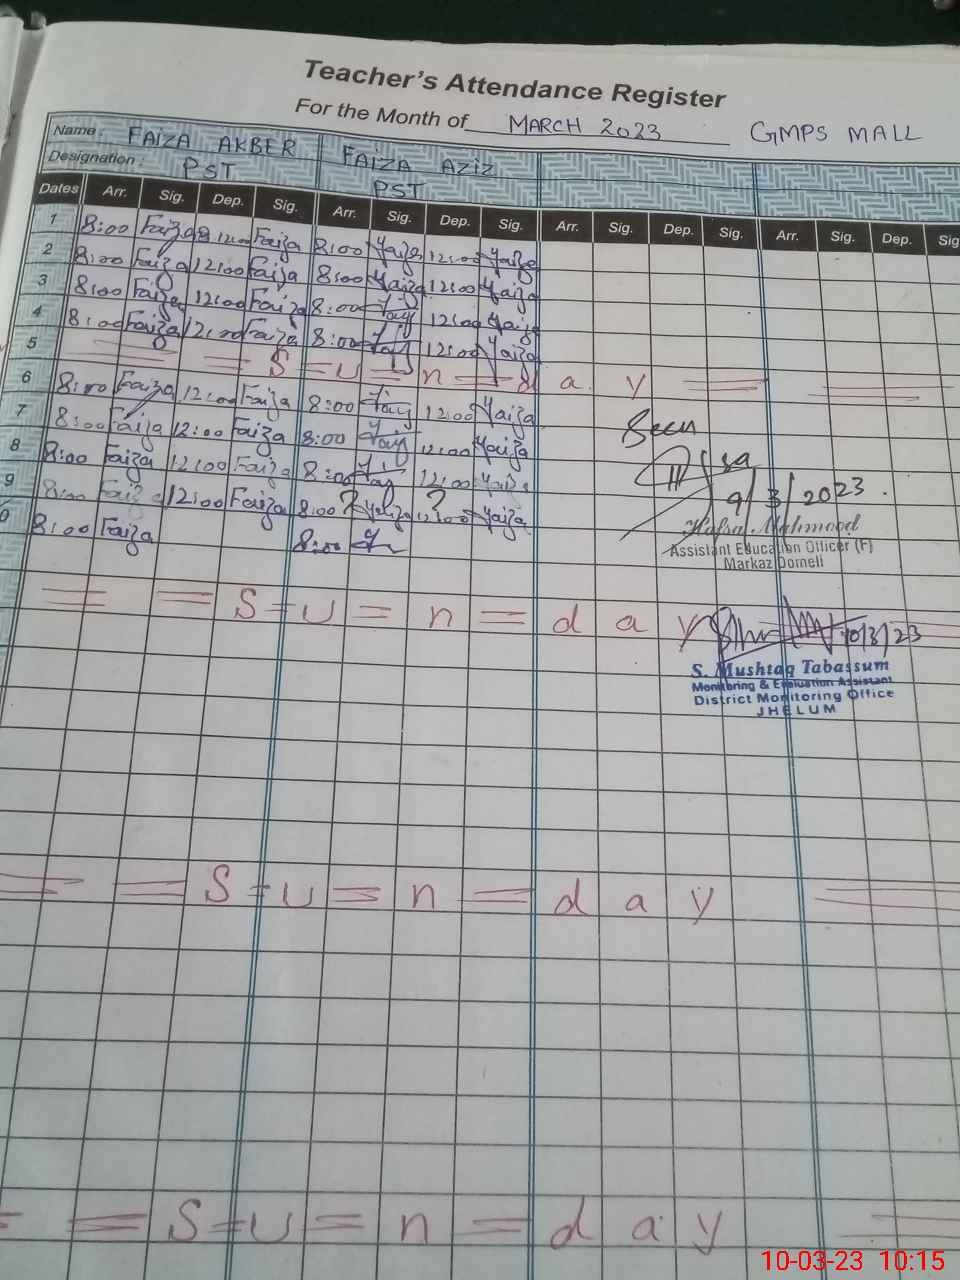 Teacher's Attendance Register
For the Month of MARCH 2023 GMPS MALL
Name: FAIZA AKBER FAIZA AZIZ
Designation: PST PST
Dates Arr. Sig. Dep. Sig. Arr. Sig. Dep. Sig. Arr. Sig. Dep. Sig. Arr. Sig. Dep. Sig
1 8:00 Faiza 12:00 Faiza 8:00 Faiza 12:00 Faiza
2 8:00 Faiza 12:00 Faiza 8:00 Faiza 12:00 Faiza
3 8:00 Faiza 12:00 Faiza 8:00 12:00 Faiza
4 8:00 Faiza 12:00 Faiza 8:00 12:00 Faiza
5 = = S = u = n = d a y = =
6 8:00 Faiza 12:00 Faiza 8:00 12:00 Faiza
7 8:00 Faiza 12:00 Faiza 8:00 12:00 Faiza
8 8:00 Faiza 12:00 Faiza 8:00 12:00 Faiza
9 8:00 Faiza 12:00 Faiza 8:00 ? Faiza 12:00 ? Faiza
0 8:00 Faiza 8:00
Seen
9/3/2023.
Hafsa Mahmood
Assistant Education Officer (F)
Markaz Domeli
= = S = u = n = d a y
10/3/23
S. Mushtaq Tabassum
Monitoring & Evaluation Assistant
District Monitoring Office
JHELUM
= = S = u = n = d a y =
= = S = u = n = d a y =
10-03-23 10:15